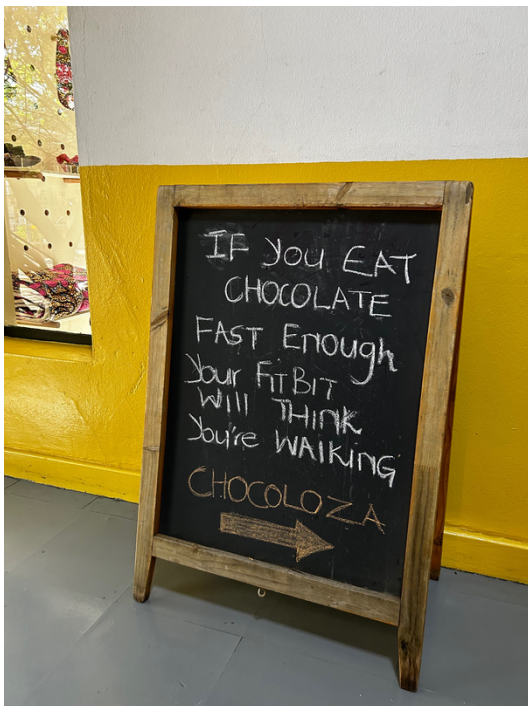 IF you EAT
CHOCOLATE
FAST Enough
your FiTBiT
Will THiNK
you're WALKiNG
CHOCOLOZA